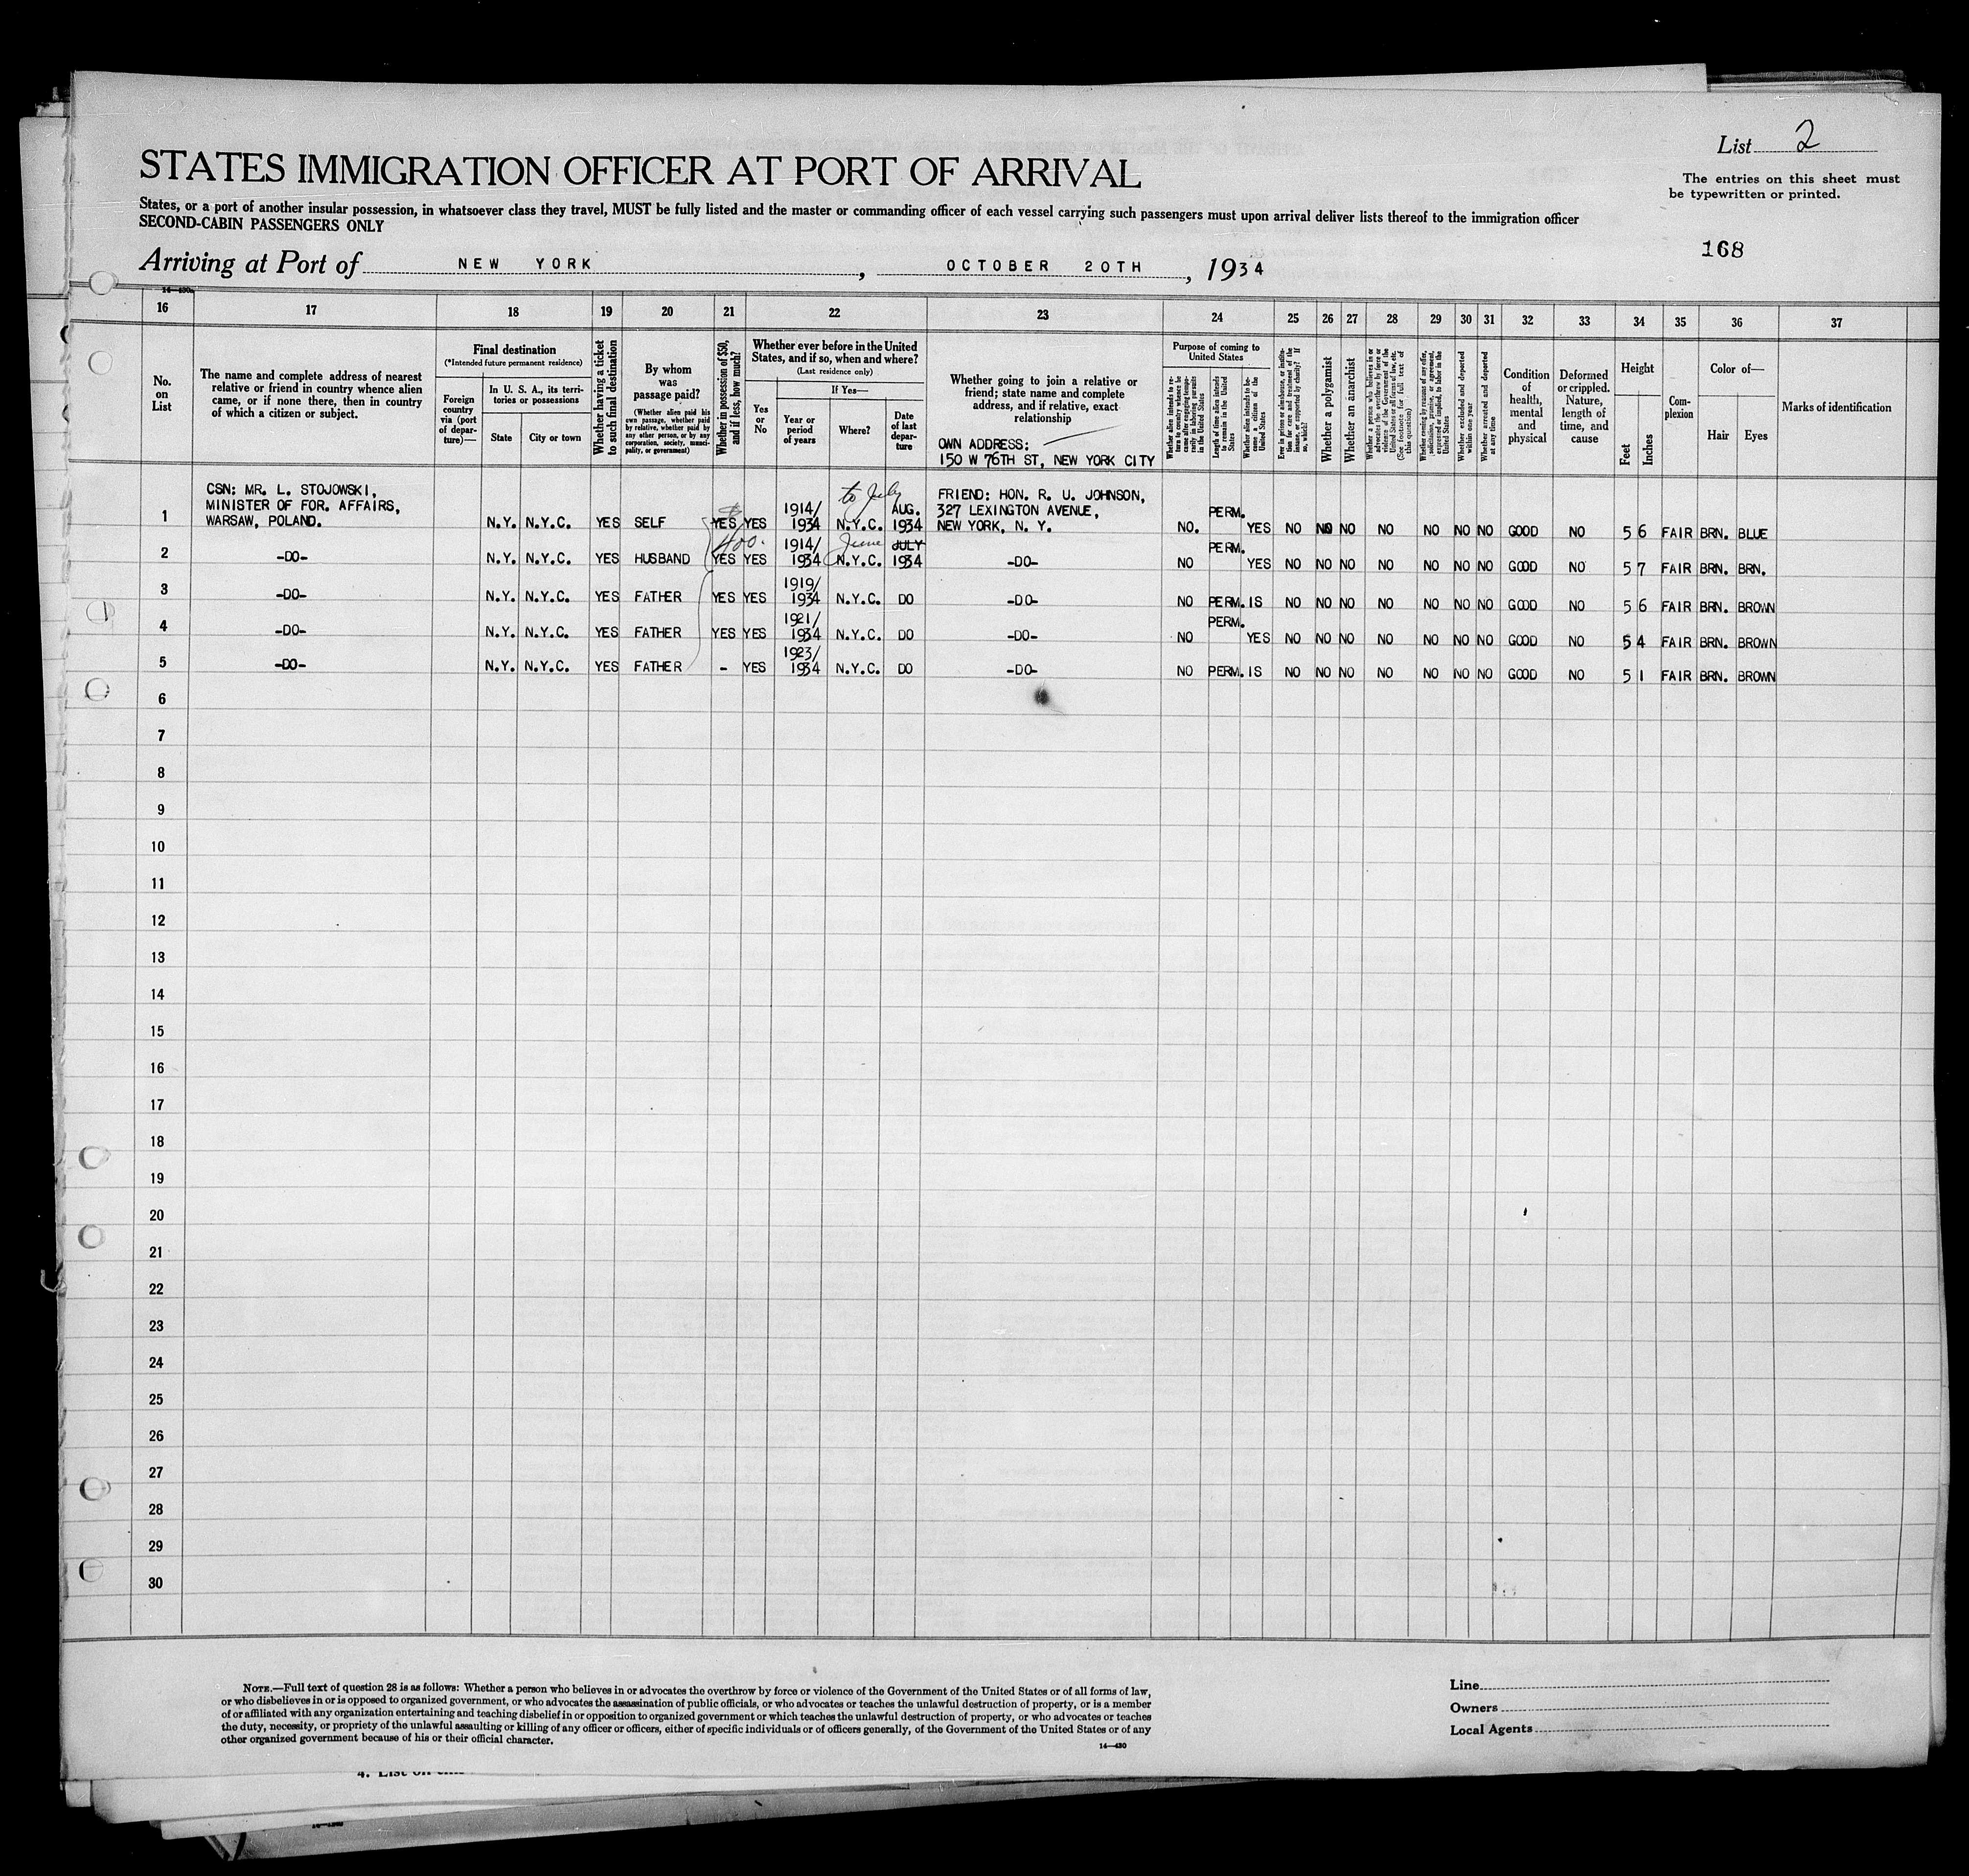 List 2
STATES IMMIGRATION OFFICER AT PORT OF ARRIVAL
The entries on this sheet must
be typewritten or printed.
States, or a port of another insular possession, in whatsoever class they travel, MUST be fully listed and the master or commanding officer of each vessel carrying such passengers must upon arrival deliver lists thereof to the immigration officer
SECOND-CABIN PASSENGERS ONLY
168
Arriving at Port of NEW YORK, OCTOBER 20TH, 1934
14—430
16 17 18 19 20 21 22 23 24 25 26 27 28 29 30 31 32 33 34 35 36 37
No. on List
The name and complete address of nearest
relative or friend in country whence alien
came, or if none there, then in country
of which a citizen or subject.
Final destination
(*Intended future permanent residence)
Foreign
country
via (port
of depar-
ture)—
In U. S. A., its terri-
tories or possessions
State
City or town
Whether having a ticket
to such final destination
By whom
was
passage paid?
(Whether alien paid his
own passage, whether paid
by relative, whether paid by
any other person, or by any
corporation, society, munici-
pality, or government)
Whether in possession of $50,
and if less, how much?
Whether ever before in the United
States, and if so, when and where?
(Last residence only)
Yes
or
No
If Yes—
Year or
period
of years
Where?
Date
of last
depar-
ture
Whether going to join a relative or
friend; state name and complete
address, and if relative, exact
relationship
OWN ADDRESS:
150 W 76TH ST, NEW YORK CITY
Purpose of coming to
United States
Whether alien intends to re-
turn to country whence he
came after engaging tempo-
rarily in laboring pursuits
in the United States
Length of time alien intends
to remain in the United
States
Whether alien intends to be-
come a citizen of the
United States
Ever in prison or almshouse, or institu-
tion for care and treatment of the
insane, or supported by charity? If
so, which?
Whether a polygamist
Whether an anarchist
Whether a person who believes in or
advocates the overthrow by force or
violence of the Government of the
United States or all forms of law, etc.
(See footnote for full text of
this question)
Whether coming by reason of any offer,
solicitation, promise, or agreement,
expressed or implied, to labor in the
United States
Whether excluded and deported
within one year
Whether arrested and deported
at any time
Condition
of
health,
mental
and
physical
Deformed
or crippled.
Nature,
length of
time, and
cause
Height
Feet
Inches
Com-
plexion
Color of—
Hair
Eyes
Marks of identification
CSN: MR. L. STOJOWSKI,
MINISTER OF FOR. AFFAIRS,
WARSAW, POLAND.
to July
FRIEND: HON. R. U. JOHNSON,
327 LEXINGTON AVENUE,
NEW YORK, N. Y.
1 N.Y. N.Y.C. YES SELF YES YES 1914/ 1934 N.Y.C. AUG. 1934 NO. PERM. YES NO NO NO NO NO NO NO GOOD NO 5 6 FAIR BRN. BLUE
$400.
June
2 -DO- N.Y. N.Y.C. YES HUSBAND YES YES 1914/ 1934 N.Y.C. JULY 1934 -DO- NO PERM. YES NO NO NO NO NO NO NO GOOD NO 5 7 FAIR BRN. BRN.
3 -DO- N.Y. N.Y.C. YES FATHER YES YES 1919/ 1934 N.Y.C. DO -DO- NO PERM. IS NO NO NO NO NO NO NO GOOD NO 5 6 FAIR BRN. BROWN
4 -DO- N.Y. N.Y.C. YES FATHER YES YES 1921/ 1934 N.Y.C. DO -DO- NO PERM. YES NO NO NO NO NO NO NO GOOD NO 5 4 FAIR BRN. BROWN
5 -DO- N.Y. N.Y.C. YES FATHER - YES 1923/ 1934 N.Y.C. DO -DO- NO PERM. IS NO NO NO NO NO NO NO GOOD NO 5 1 FAIR BRN. BROWN
6
7
8
9
10
11
12
13
14
15
16
17
18
19
20
21
22
23
24
25
26
27
28
29
30
NOTE.—Full text of question 28 is as follows: Whether a person who believes in or advocates the overthrow by force or violence of the Government of the United States or of all forms of law,
or who disbelieves in or is opposed to organized government, or who advocates the assassination of public officials, or who advocates or teaches the unlawful destruction of property, or is a member
of or affiliated with any organization entertaining and teaching disbelief in or opposition to organized government or which teaches the unlawful destruction of property, or who advocates or teaches
the duty, necessity, or propriety of the unlawful assaulting or killing of any officer or officers, either of specific individuals or of officers generally, of the Government of the United States or of any
other organized government because of his or their official character.
14—430
Line
Owners
Local Agents